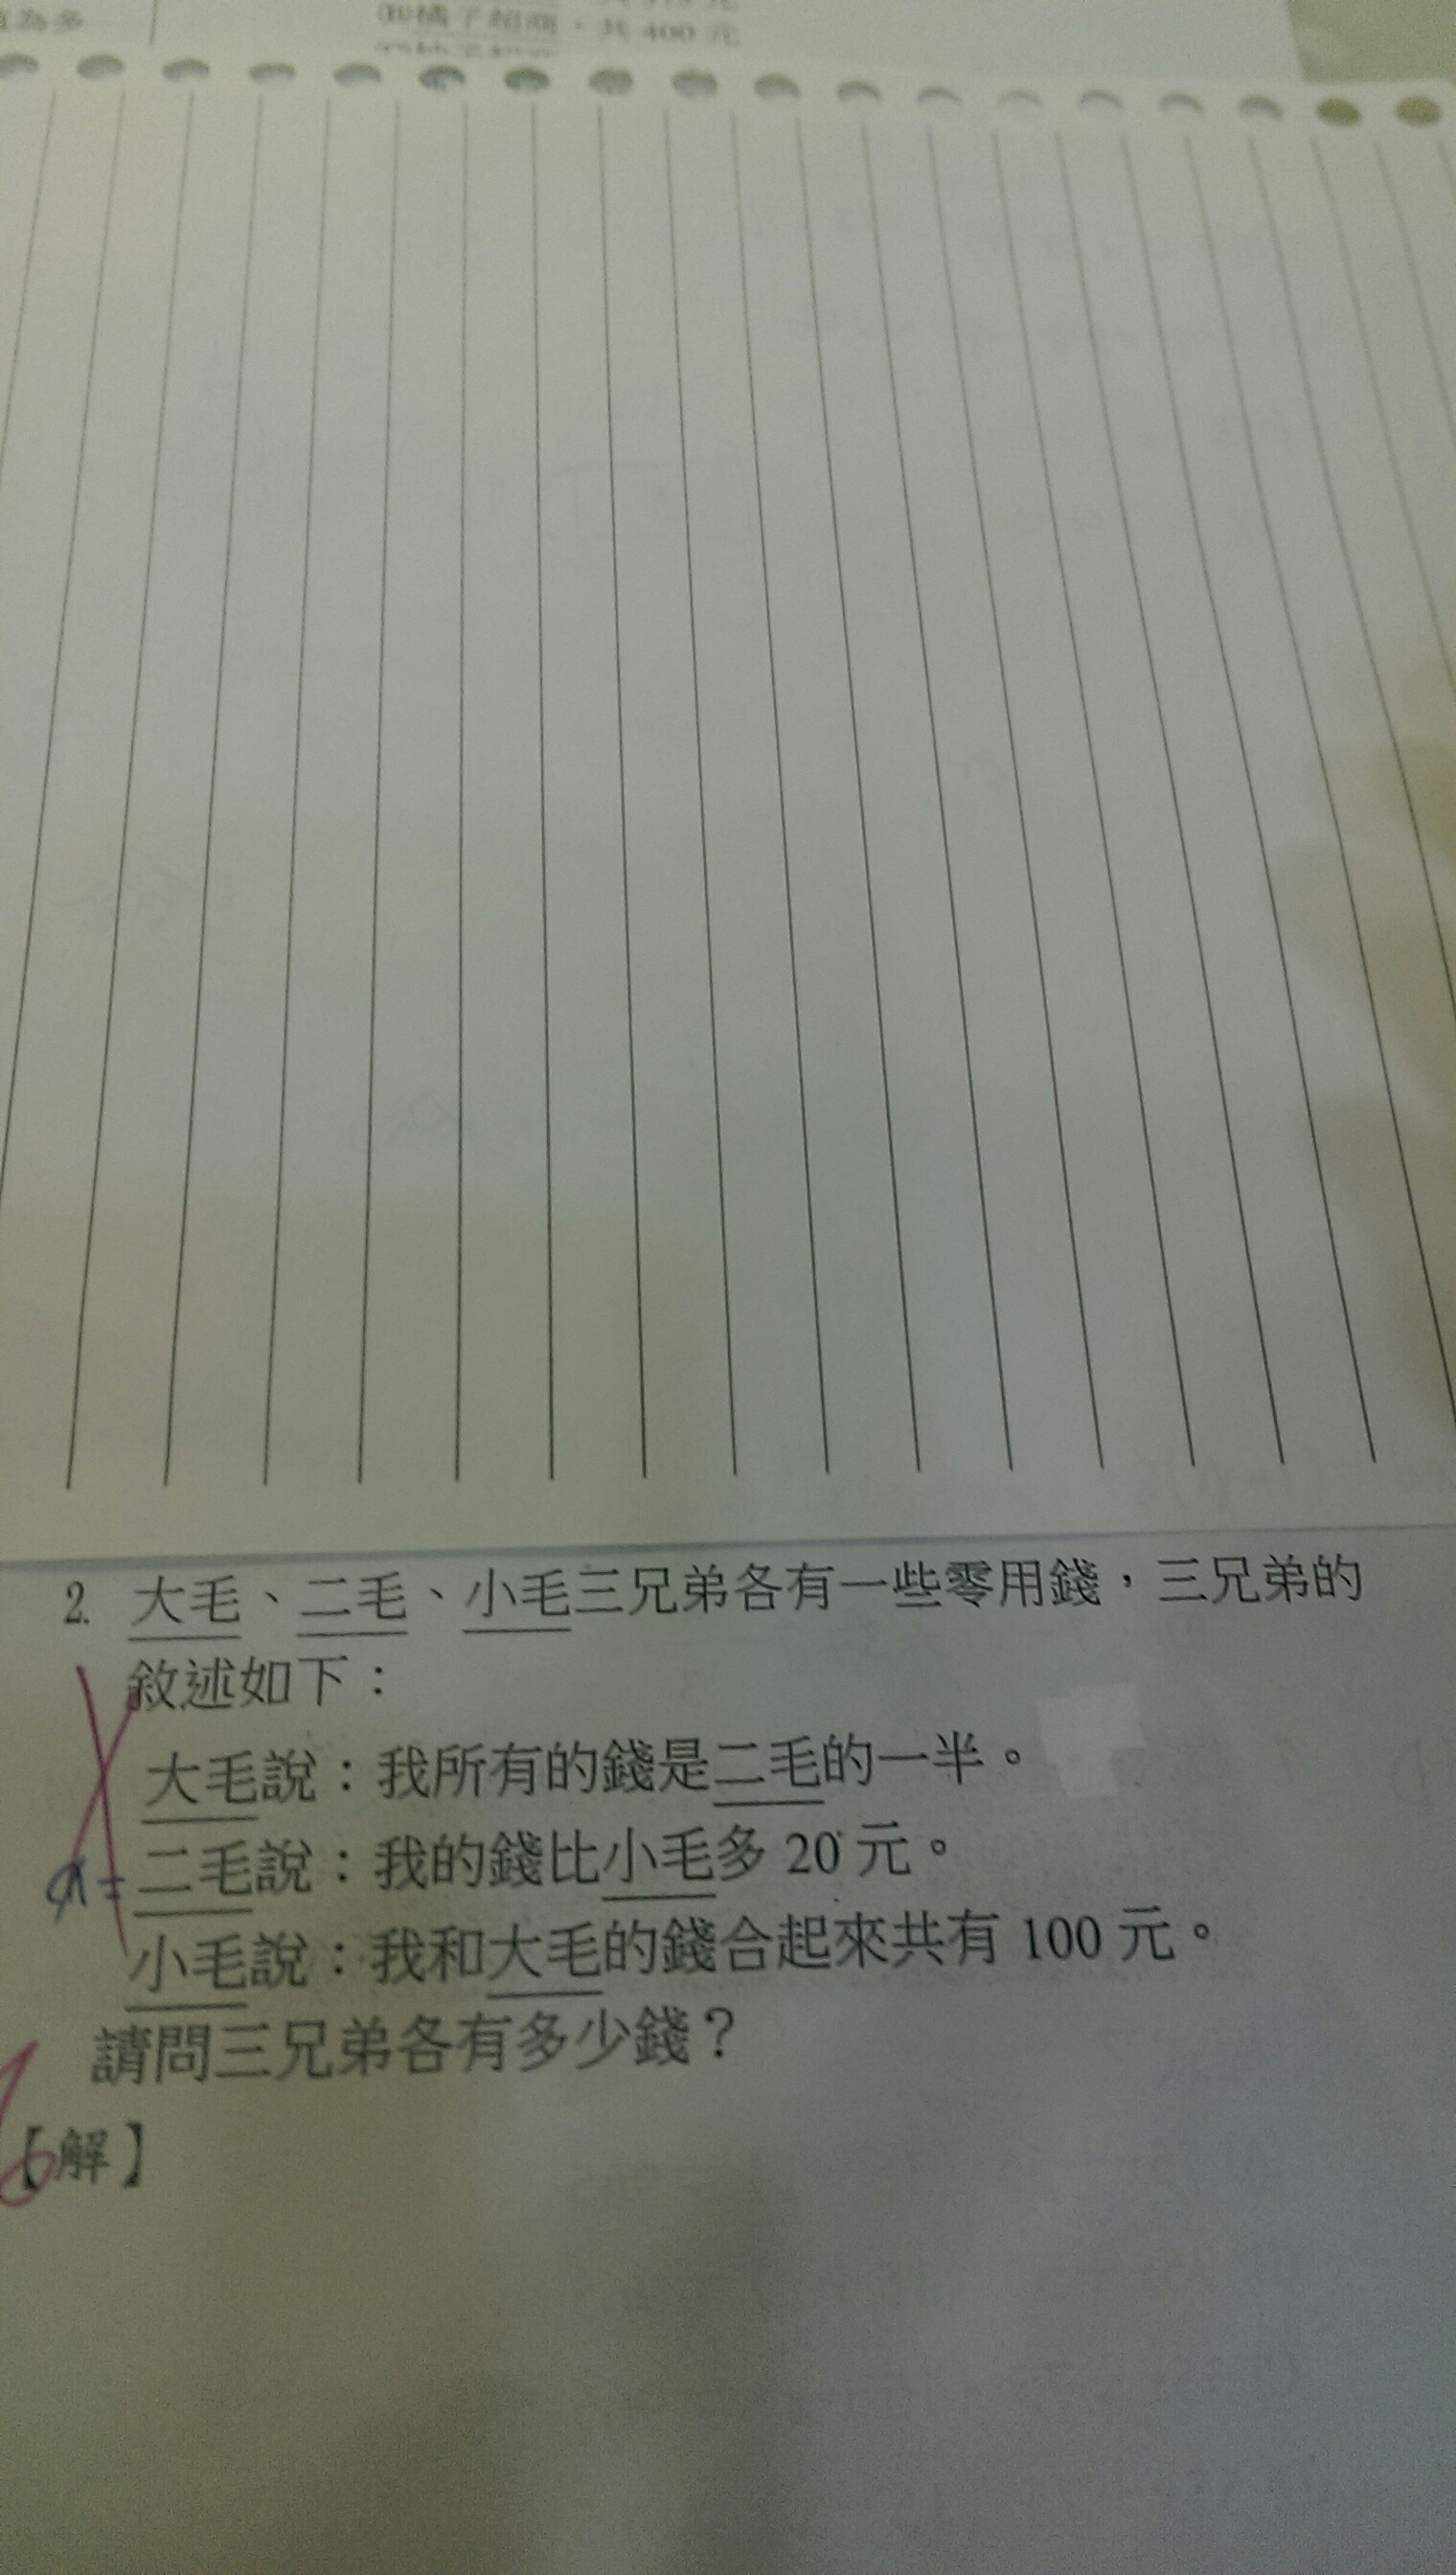 為多
橘子招商，共 400 元
2. 大毛、二毛、小毛三兄弟各有一些零用錢，三兄弟的
敘述如下：
大毛說：我所有的錢是二毛的一半。
二毛說：我的錢比小毛多 20 元。
小毛說：我和大毛的錢合起來共有 100 元。
請問三兄弟各有多少錢？
【解】